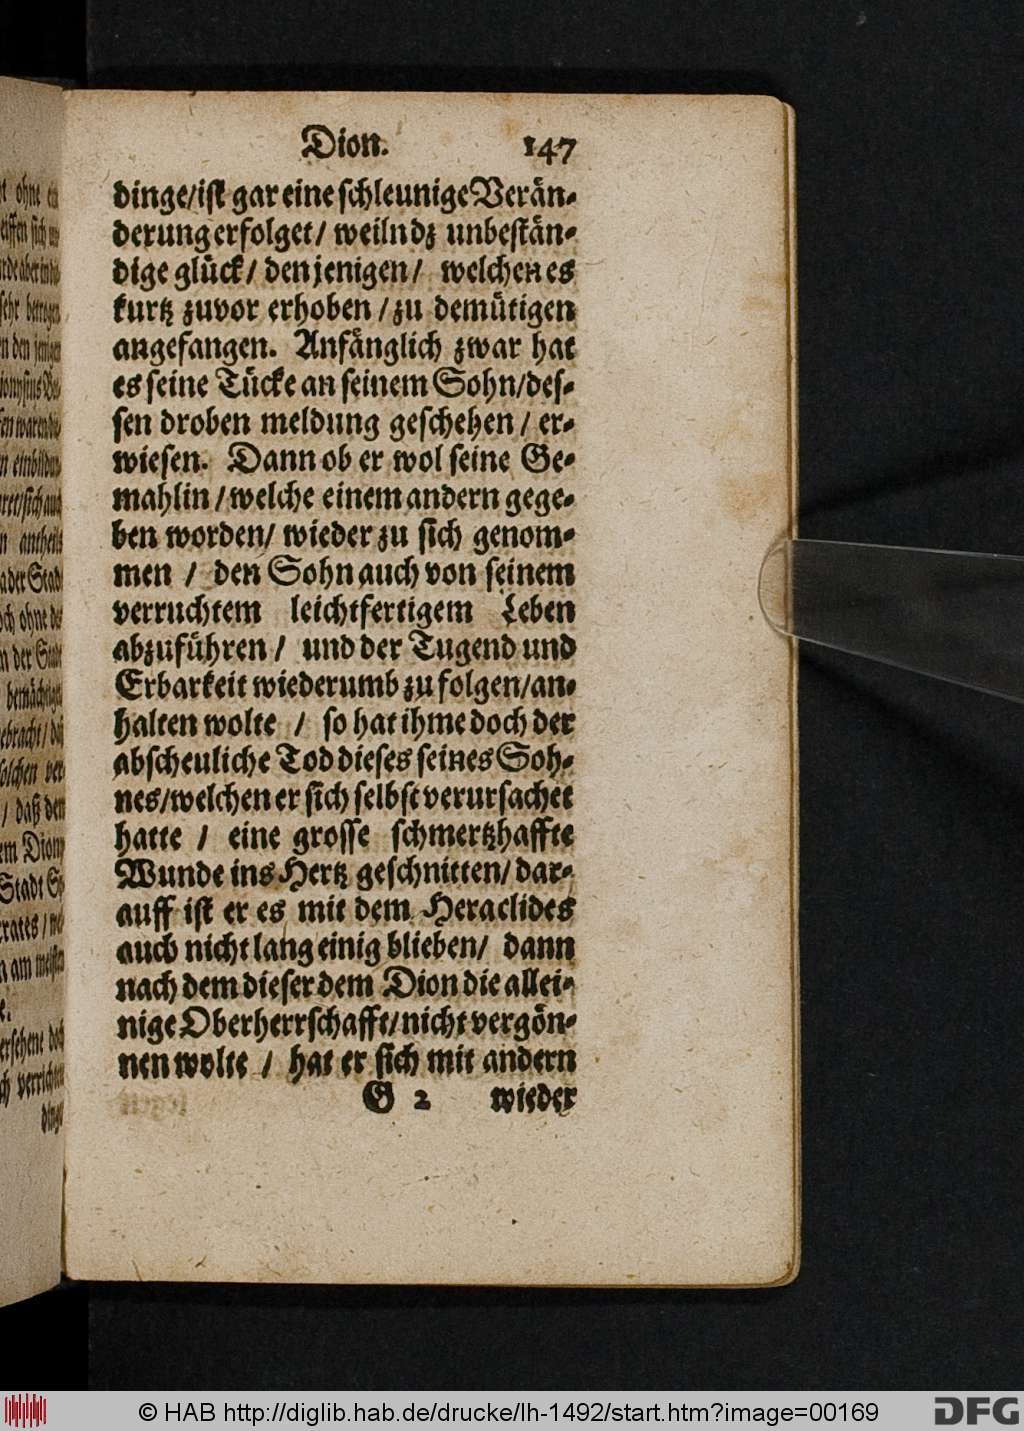 Dion. 147
dinge/ist gar eine schleunige Verän-
derung erfolget/ weiln dz unbestän-
dige glück/ den jenigen/ welchen es
kurtz zuvor erhoben / zu demütigen
angefangen. Anfänglich zwar hat
es seine Tücke an seinem Sohn/des-
sen droben meldung geschehen / er-
wiesen. Dann ob er wol seine Ge-
mahlin / welche einem andern gege-
ben worden/ wieder zu sich genom-
men / den Sohn auch von seinem
verruchtem leichtfertigem Leben
abzuführen / und der Tugend und
Erbarkeit wiederumb zu folgen/an-
halten wolte / so hat ihme doch der
abscheuliche Tod dieses seines Soh-
nes/welchen er sich selbst verursachet
hatte / eine grosse schmertzhaffte
Wunde ins Hertz geschnitten/ dar-
auff ist er es mit dem Heraclides
auch nicht lang einig blieben/ dann
nach dem dieser dem Dion die allei-
nige Oberherrschafft/nicht vergön-
nen wolte / hat er sich mit andern
G 2 wieder
© HAB http://diglib.hab.de/drucke/lh-1492/start.htm?image=00169
DFG